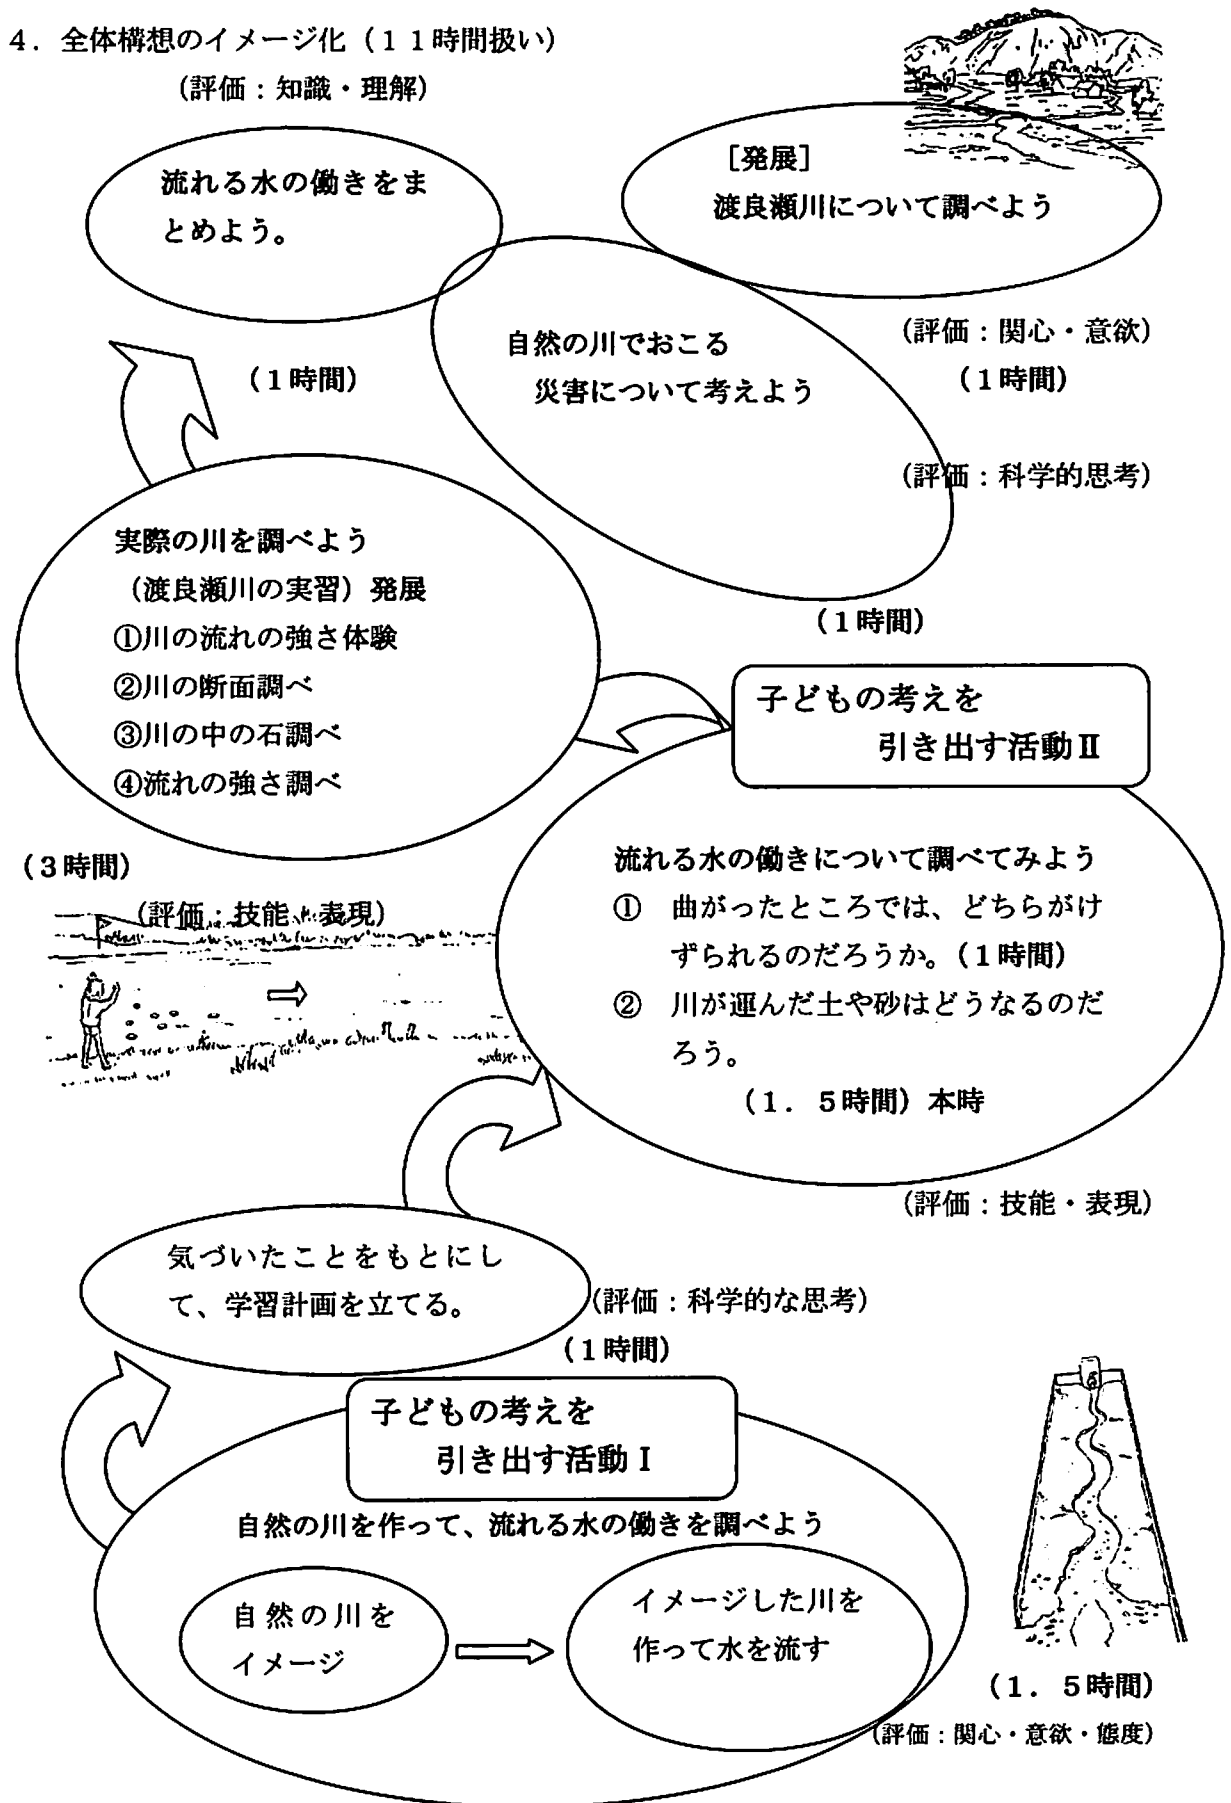 4．全体構想のイメージ化（11時間扱い）
（評価：知識・理解）
流れる水の働きをま
とめよう。
（1時間）
［発展］
渡良瀬川について調べよう
（評価：関心・意欲）
（1時間）
自然の川でおこる
災害について考えよう
（評価：科学的思考）
（1時間）
実際の川を調べよう
（渡良瀬川の実習）発展
①川の流れの強さ体験
②川の断面調べ
③川の中の石調べ
④流れの強さ調べ
（3時間）
（評価：技能・表現）
子どもの考えを
引き出す活動Ⅱ
流れる水の働きについて調べてみよう
①　曲がったところでは、どちらがけ
ずられるのだろうか。（1時間）
②　川が運んだ土や砂はどうなるのだ
ろう。
（1．5時間）本時
（評価：技能・表現）
気づいたことをもとにし
て、学習計画を立てる。
（評価：科学的な思考）
（1時間）
子どもの考えを
引き出す活動Ⅰ
自然の川を作って、流れる水の働きを調べよう
自然の川を
イメージ
イメージした川を
作って水を流す
（1．5時間）
（評価：関心・意欲・態度）